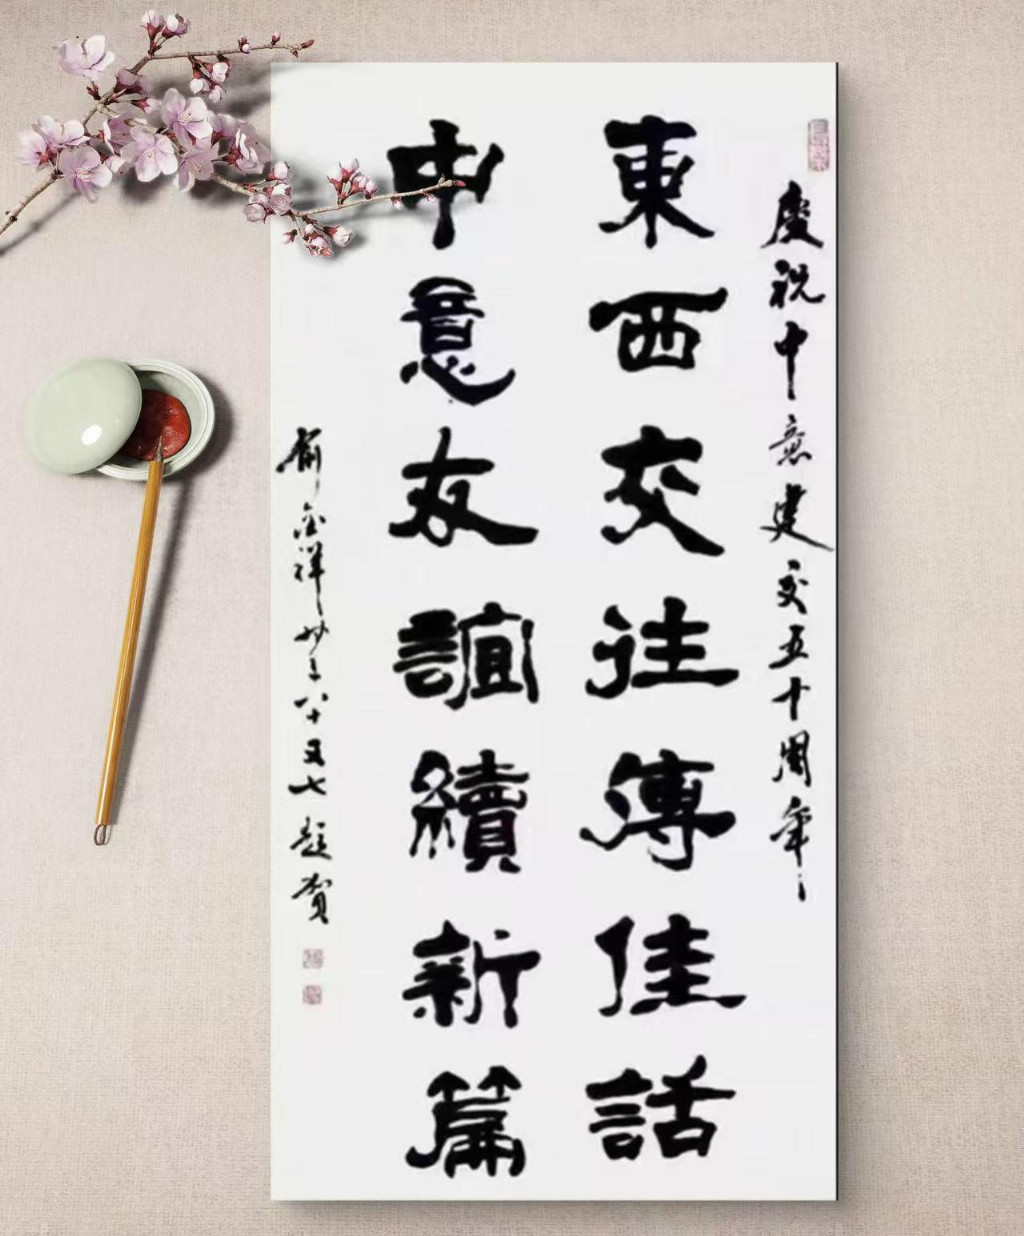 慶祝中意建交五十周年
東西交往傳佳話
中意友誼續新篇
俞金祥 時年八十又七 題賀